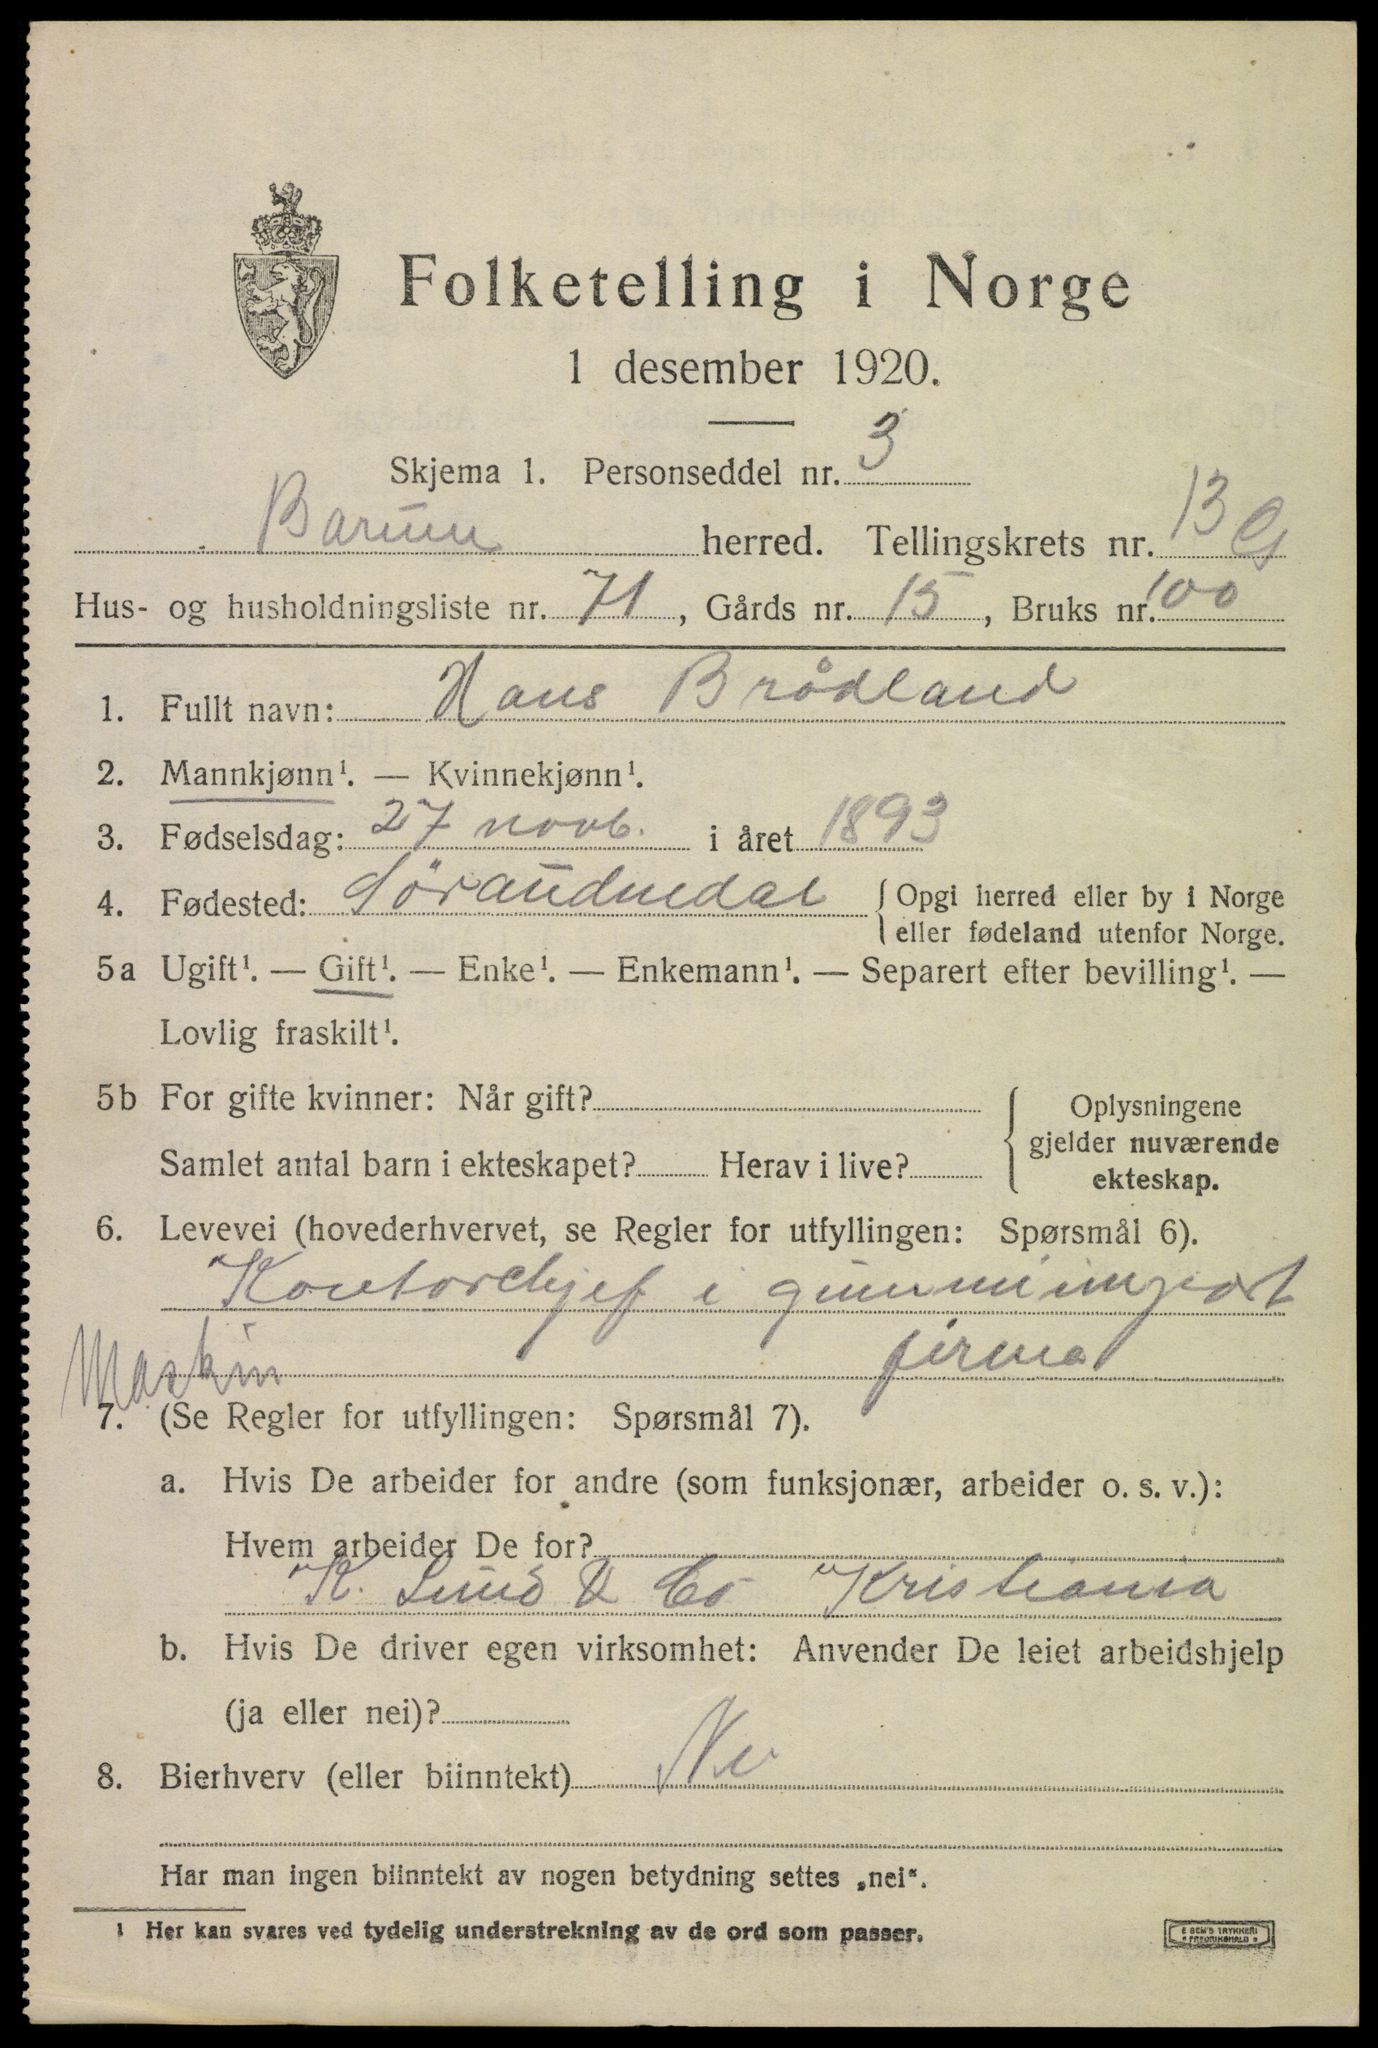 Folketelling i Norge
1 desember 1920.
Skjema 1. Personseddel nr. 3
Barum herred. Tellingskrets nr. 13 G
Hus- og husholdningsliste nr. 71, Gårds nr. 15, Bruks nr. 100
1. Fullt navn: Hans Brådland
2. Mannkjønn¹. — Kvinnekjønn¹.
3. Fødselsdag: 27 novb. i året 1893
4. Fødested: Söraudnedal { Opgi herred eller by i Norge
eller fødeland utenfor Norge.
5a Ugift¹. — Gift¹. — Enke¹. — Enkemann¹. — Separert efter bevilling¹. —
Lovlig fraskilt¹.
5b For gifte kvinner: Når gift?
Samlet antal barn i ekteskapet? Herav i live?
Oplysningene
gjelder nuværende
ekteskap.
6. Levevei (hovederhvervet, se Regler for utfyllingen: Spørsmål 6).
Kontorchjef i gummiimport
firma
Maskin
7. (Se Regler for utfyllingen: Spørsmål 7).
a. Hvis De arbeider for andre (som funksjonær, arbeider o. s. v.):
Hvem arbeider De for?
K. Lund & Co Kristiania
b. Hvis De driver egen virksomhet: Anvender De leiet arbeidshjelp
(ja eller nei)?
8. Bierhverv (eller biinntekt) Nei
Har man ingen biinntekt av nogen betydning settes „nei“.
1 Her kan svares ved tydelig understrekning av de ord som passer.
E SEM'S TRYKKERI
FREDRIKSHALD